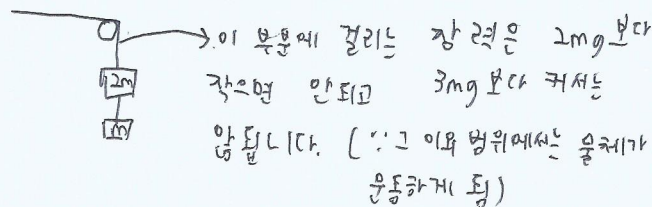 이 부분에 걸리는 장력은 2mg보다
작으면 안되고 3mg보다 커서는
안됩니다. (∵그 이외 범위에서는 물체가
운동하게 됨)
2m
m